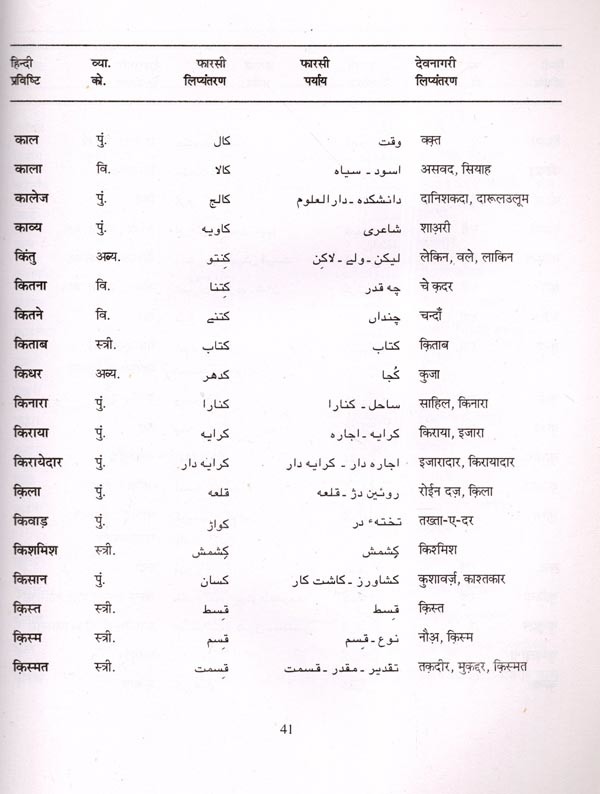 हिन्दी व्या. फारसी फारसी देवनागरी
प्रविष्टि को. लिप्यंतरण पर्याय लिप्यंतरण
काल पुं. کال وقت वक़्त
काला वि. کالا اسود ـ سیاہ असवद, सियाह
कालेज पुं. کالج دانشکدہ ـ دارالعلوم दानिशकदा, दारूलउलूम
काव्य पुं. کاویہ شاعری शाअ़री
किंतु अव्य. کِنتو لیکن ـ ولے ـ لاکِن लेकिन, वले, लाकिन
कितना वि. کِتنا چہ قدر चे क़दर
कितने वि. کتنے چنداں चन्दाँ
किताब स्त्री. کتاب کتاب क़िताब
किधर अव्य. کدھر کُجا कुजा
किनारा पुं. کنارا ساحل ـ کنارا साहिल, किनारा
किराया पुं. کرایہ کرایہ ـ اجارہ किराया, इजारा
किरायेदार पुं. کرایہ دار اجارہ دار ـ کرایہ دار इजारादार, किरायादार
क़िला पुं. قلعہ روئین دژ ـ قلعہ रोईन दज़, क़िला
किवाड़ पुं. کواڑ تختہء در तख्ता-ए-दर
किशमिश स्त्री. کِشمش کِشمش किश्मिश
किसान पुं. کسان کشاورز ـ کاشت کار कुशावर्ज़, काश्तकार
क़िस्त स्त्री. قِسط قِسط क़िस्त
क़िस्म स्त्री. قِسم نوع ـ قِسم नौअ़, क़िस्म
क़िस्मत स्त्री. قِسمت تقدیر ـ مقدر ـ قسمت तक़दीर, मुक़द्दर, क़िस्मत
41